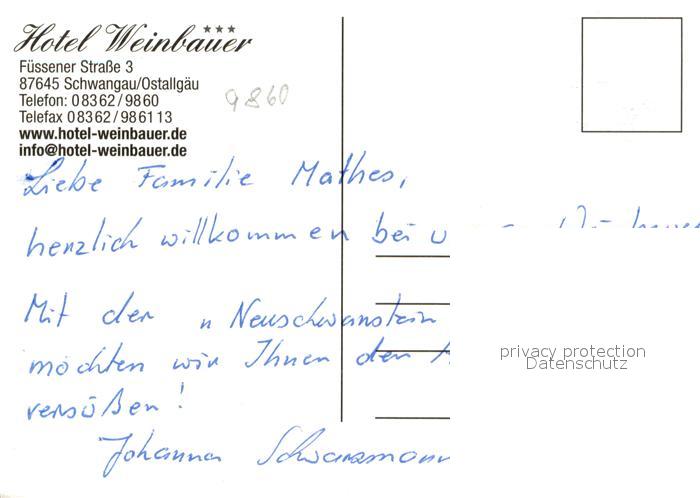 Hotel Weinbauer ***
Füssener Straße 3
87645 Schwangau/Ostallgäu
Telefon: 08362/9860
Telefax 08362/986113
www.hotel-weinbauer.de
info@hotel-weinbauer.de
9860
Liebe Familie Mathes,
herzlich willkommen bei
Mit der "Neuschwanstein
möchten wir Ihnen den
versüßen!
Johanna Schwarzmann
privacy protection
Datenschutz